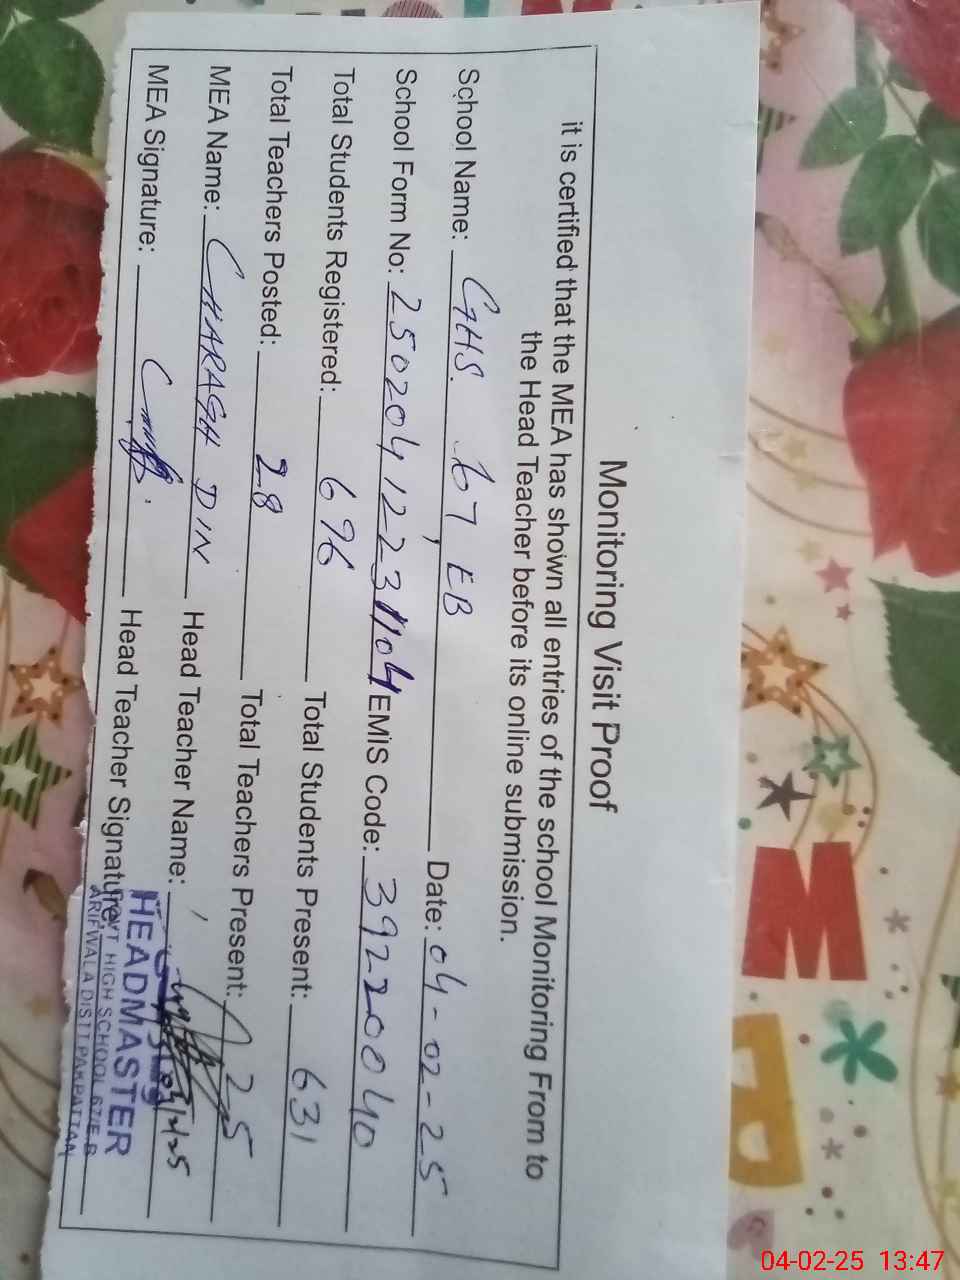 Monitoring Visit Proof
it is certified that the MEA has shown all entries of the school Monitoring From to
the Head Teacher before its online submission.
School Name: GHS. 67 EB Date: 04-02-25
School Form No: 25020412231104 EMIS Code: 39220040
Total Students Registered: 696 Total Students Present: 631
Total Teachers Posted: 28 Total Teachers Present: 25
MEA Name: CHARAGH DIN Head Teacher Name:
MEA Signature: Head Teacher Signature:
HEADMASTER
GOVT HIGH SCHOOL 67/E.B
ARIFWALA DISTT.PAKPATTAN
M
04-02-25 13:47